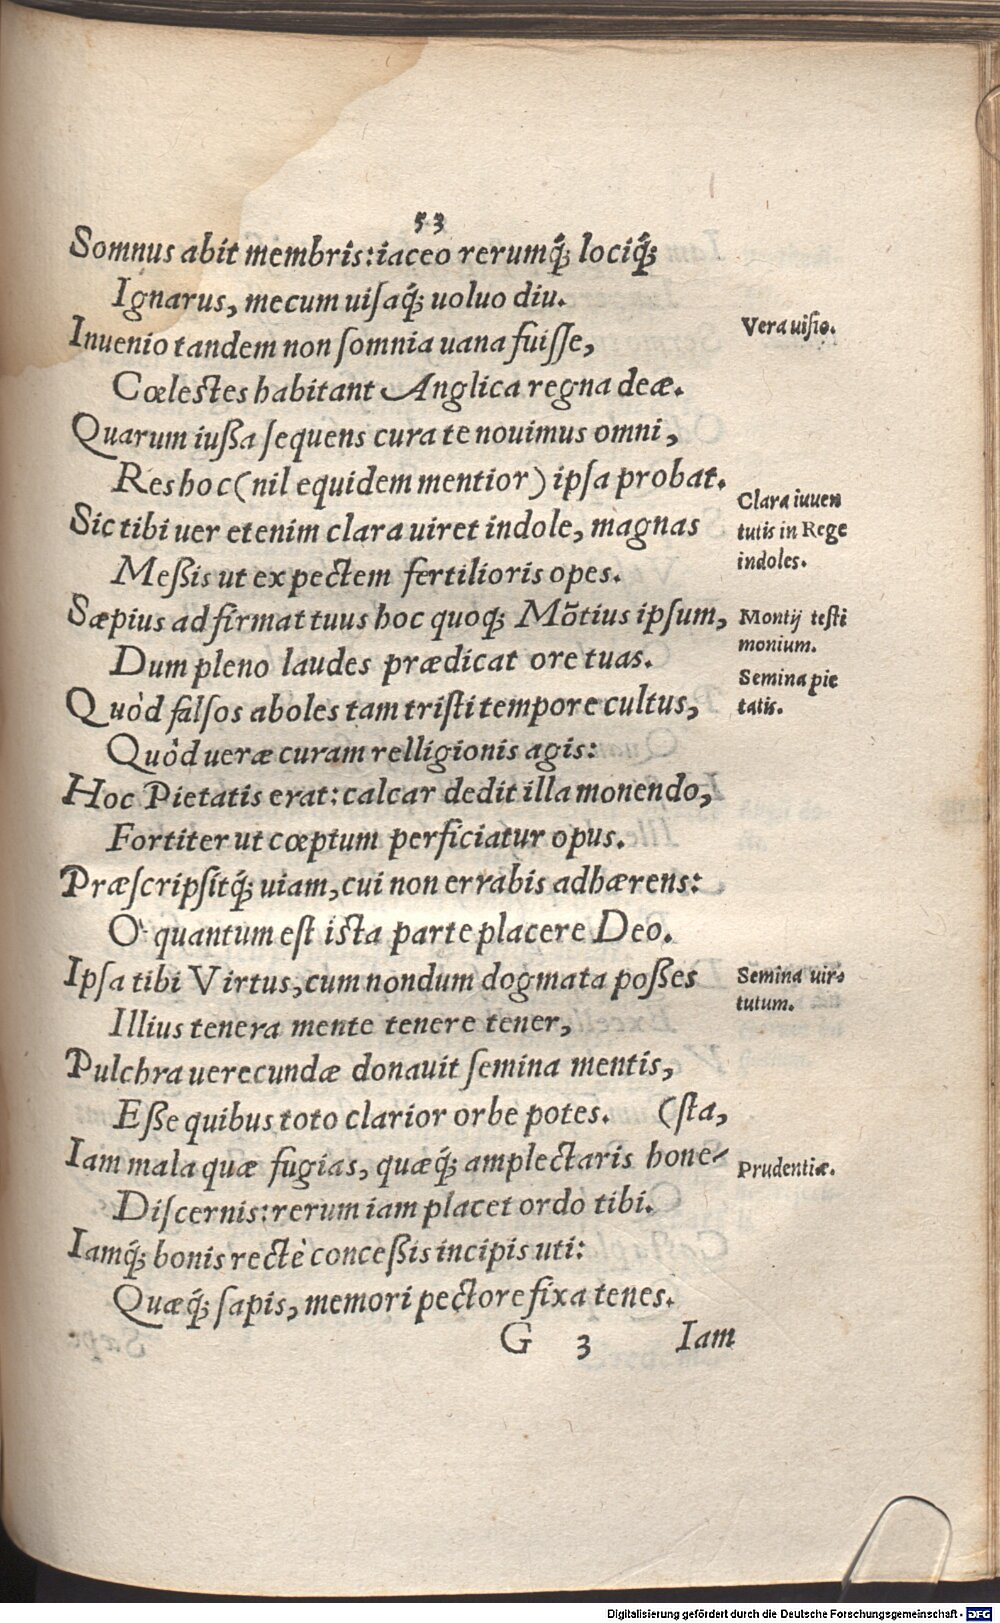 53
Somnus abit membris: iaceo rerumq́; lociq́;
Ignarus, mecum uisaq́; uoluo diu.
Inuenio tandem non somnia uana fuisse,
Vera uisio.
Cœlestes habitant Anglica regna deæ.
Quarum iußa sequens cura te nouimus omni,
Res hoc (nil equidem mentior) ipsa probat.
Clara iuuen
Sic tibi uer etenim clara uiret indole, magnas
tutis in Rege
indoles.
Meßis ut expectem fertilioris opes.
Sæpius adfirmat tuus hoc quoq; Mõtius ipsum,
Montij testi
monium.
Dum pleno laudes prædicat ore tuas.
Semina pie
tatis.
Quòd falsos aboles tam tristi tempore cultus,
Quòd ueræ curam relligionis agis:
Hoc Pietatis erat: calcar dedit illa monendo,
Fortiter ut cœptum perficiatur opus.
Præscripsitq́; uiam, cui non errabis adhærens:
O quantum est ista parte placere Deo.
Ipsa tibi Virtus, cum nondum dogmata poßes
Semina uir-
tutum.
Illius tenera mente tenere tener,
Pulchra uerecundæ donauit semina mentis,
Eße quibus toto clarior orbe potes. (sta,
Iam mala quæ fugias, quæq́; amplectaris hone-
Prudentiæ.
Discernis: rerum iam placet ordo tibi.
Iamq́; bonis rectè conceßis incipis uti:
Quæq́; sapis, memori pectore fixa tenes.
G 3 Iam
Digitalisierung gefördert durch die Deutsche Forschungsgemeinschaft - DFG